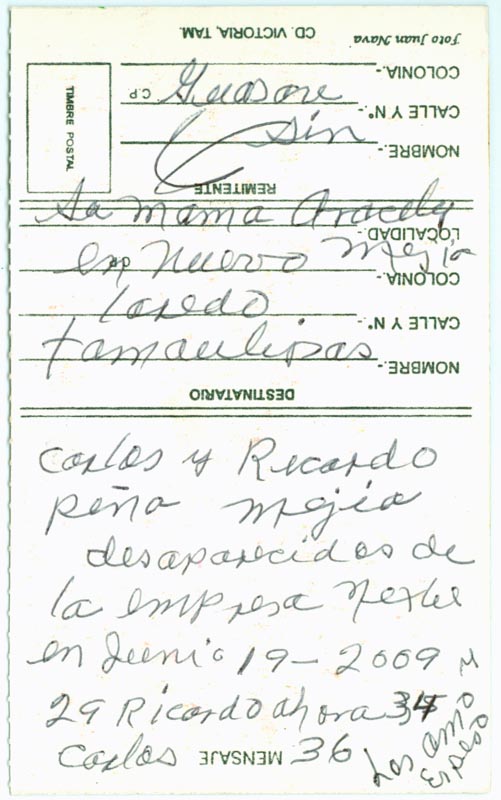 Foto Juan Nava CD. VICTORIA, TAM.
COLONIA.-
Guasave
C.P.
CALLE Y N°.-
TIMBRE POSTAL
Sin
NOMBRE.-
REMITENTE
Su mama Aracely
LOCALIDAD.-
Mejia
en Nuevo
C.P.
COLONIA.-
Laredo
CALLE Y N°.-
tamaulipas
NOMBRE.-
DESTINATARIO
Carlos y Ricardo
peña mejia
desaparecidos de
la empresa Nestle
en Junio 19-2009
29 Ricardo ahora 34
Carlos 36
MENSAJE
Los amo y
Espero